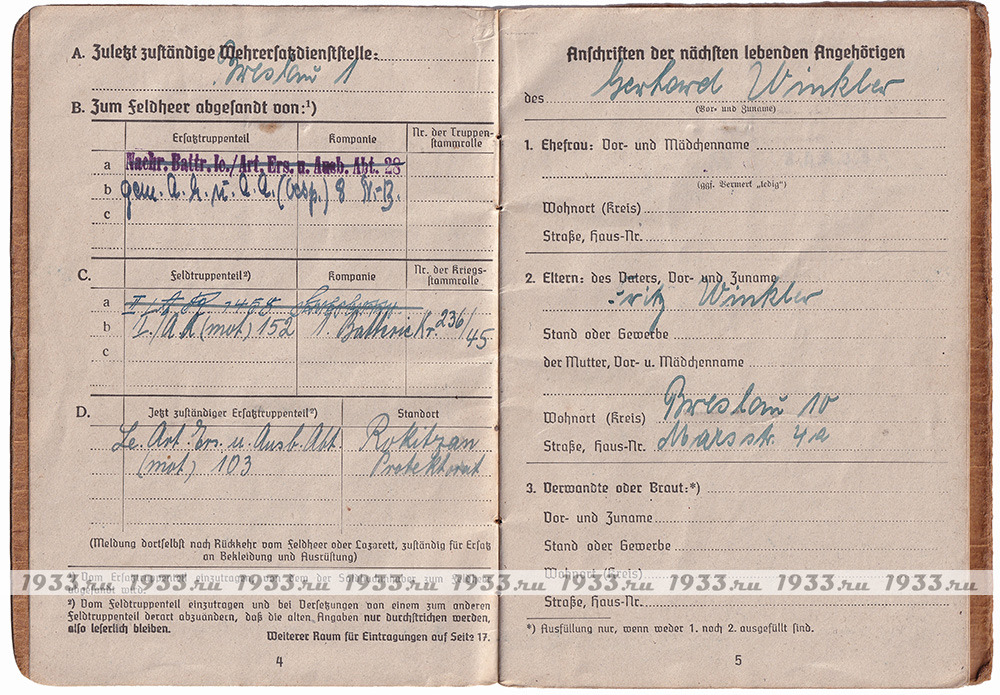 A. Zuletzt zuständige Wehrersatzdienststelle:
Breslau 1
B. Zum Feldheer abgesandt von:¹)
Ersatztruppenteil Kompanie Nr. der Truppen-
stammrolle
a Nachr. Battr. le./Art. Ers. u. Ausb. Abt. 28
b gem. A. E. u. A. A.
c
C. Feldtruppenteil²) Kompanie Nr. der Kriegs-
stammrolle
a
b I./A.R. (mot) 152 1. Batterie Nr. 236/45
c
D. Jetzt zuständiger Ersatztruppenteil²) Standort
Le. Art. Ers. u. Ausb. Abt. Rokitzan
(mot) 103 Protektorat
(Meldung dortselbst nach Rückkehr vom Feldheer oder Lazarett, zuständig für Ersatz
an Bekleidung und Ausrüstung)
¹) Vom Ersatztruppenteil einzutragen, von dem der Soldbuchinhaber zum Feldheer
abgesandt wird.
²) Vom Feldtruppenteil einzutragen und bei Versetzungen von einem zum anderen
Feldtruppenteil derart abzuändern, daß die alten Angaben nur durchstrichen werden,
also leserlich bleiben.
Weiterer Raum für Eintragungen auf Seite 17.
4
Anschriften der nächsten lebenden Angehörigen
des Gerhard Winkler
(Vor- und Zuname)
1. Ehefrau: Vor- und Mädchenname
(ggf. Vermerk „ledig“)
Wohnort (Kreis)
Straße, Haus-Nr.
2. Eltern: des Vaters, Vor- und Zuname
Fritz Winkler
Stand oder Gewerbe
der Mutter, Vor- u. Mädchenname
Wohnort (Kreis) Breslau 10
Straße, Haus-Nr. Marsstr. 4a
3. Verwandte oder Braut:*)
Vor- und Zuname
Stand oder Gewerbe
Wohnort (Kreis)
Straße, Haus-Nr.
*) Ausfüllung nur, wenn weder 1. noch 2. ausgefüllt sind.
5
1933.ru 1933.ru 1933.ru 1933.ru 1933.ru 1933.ru 1933.ru 1933.ru 1933.ru